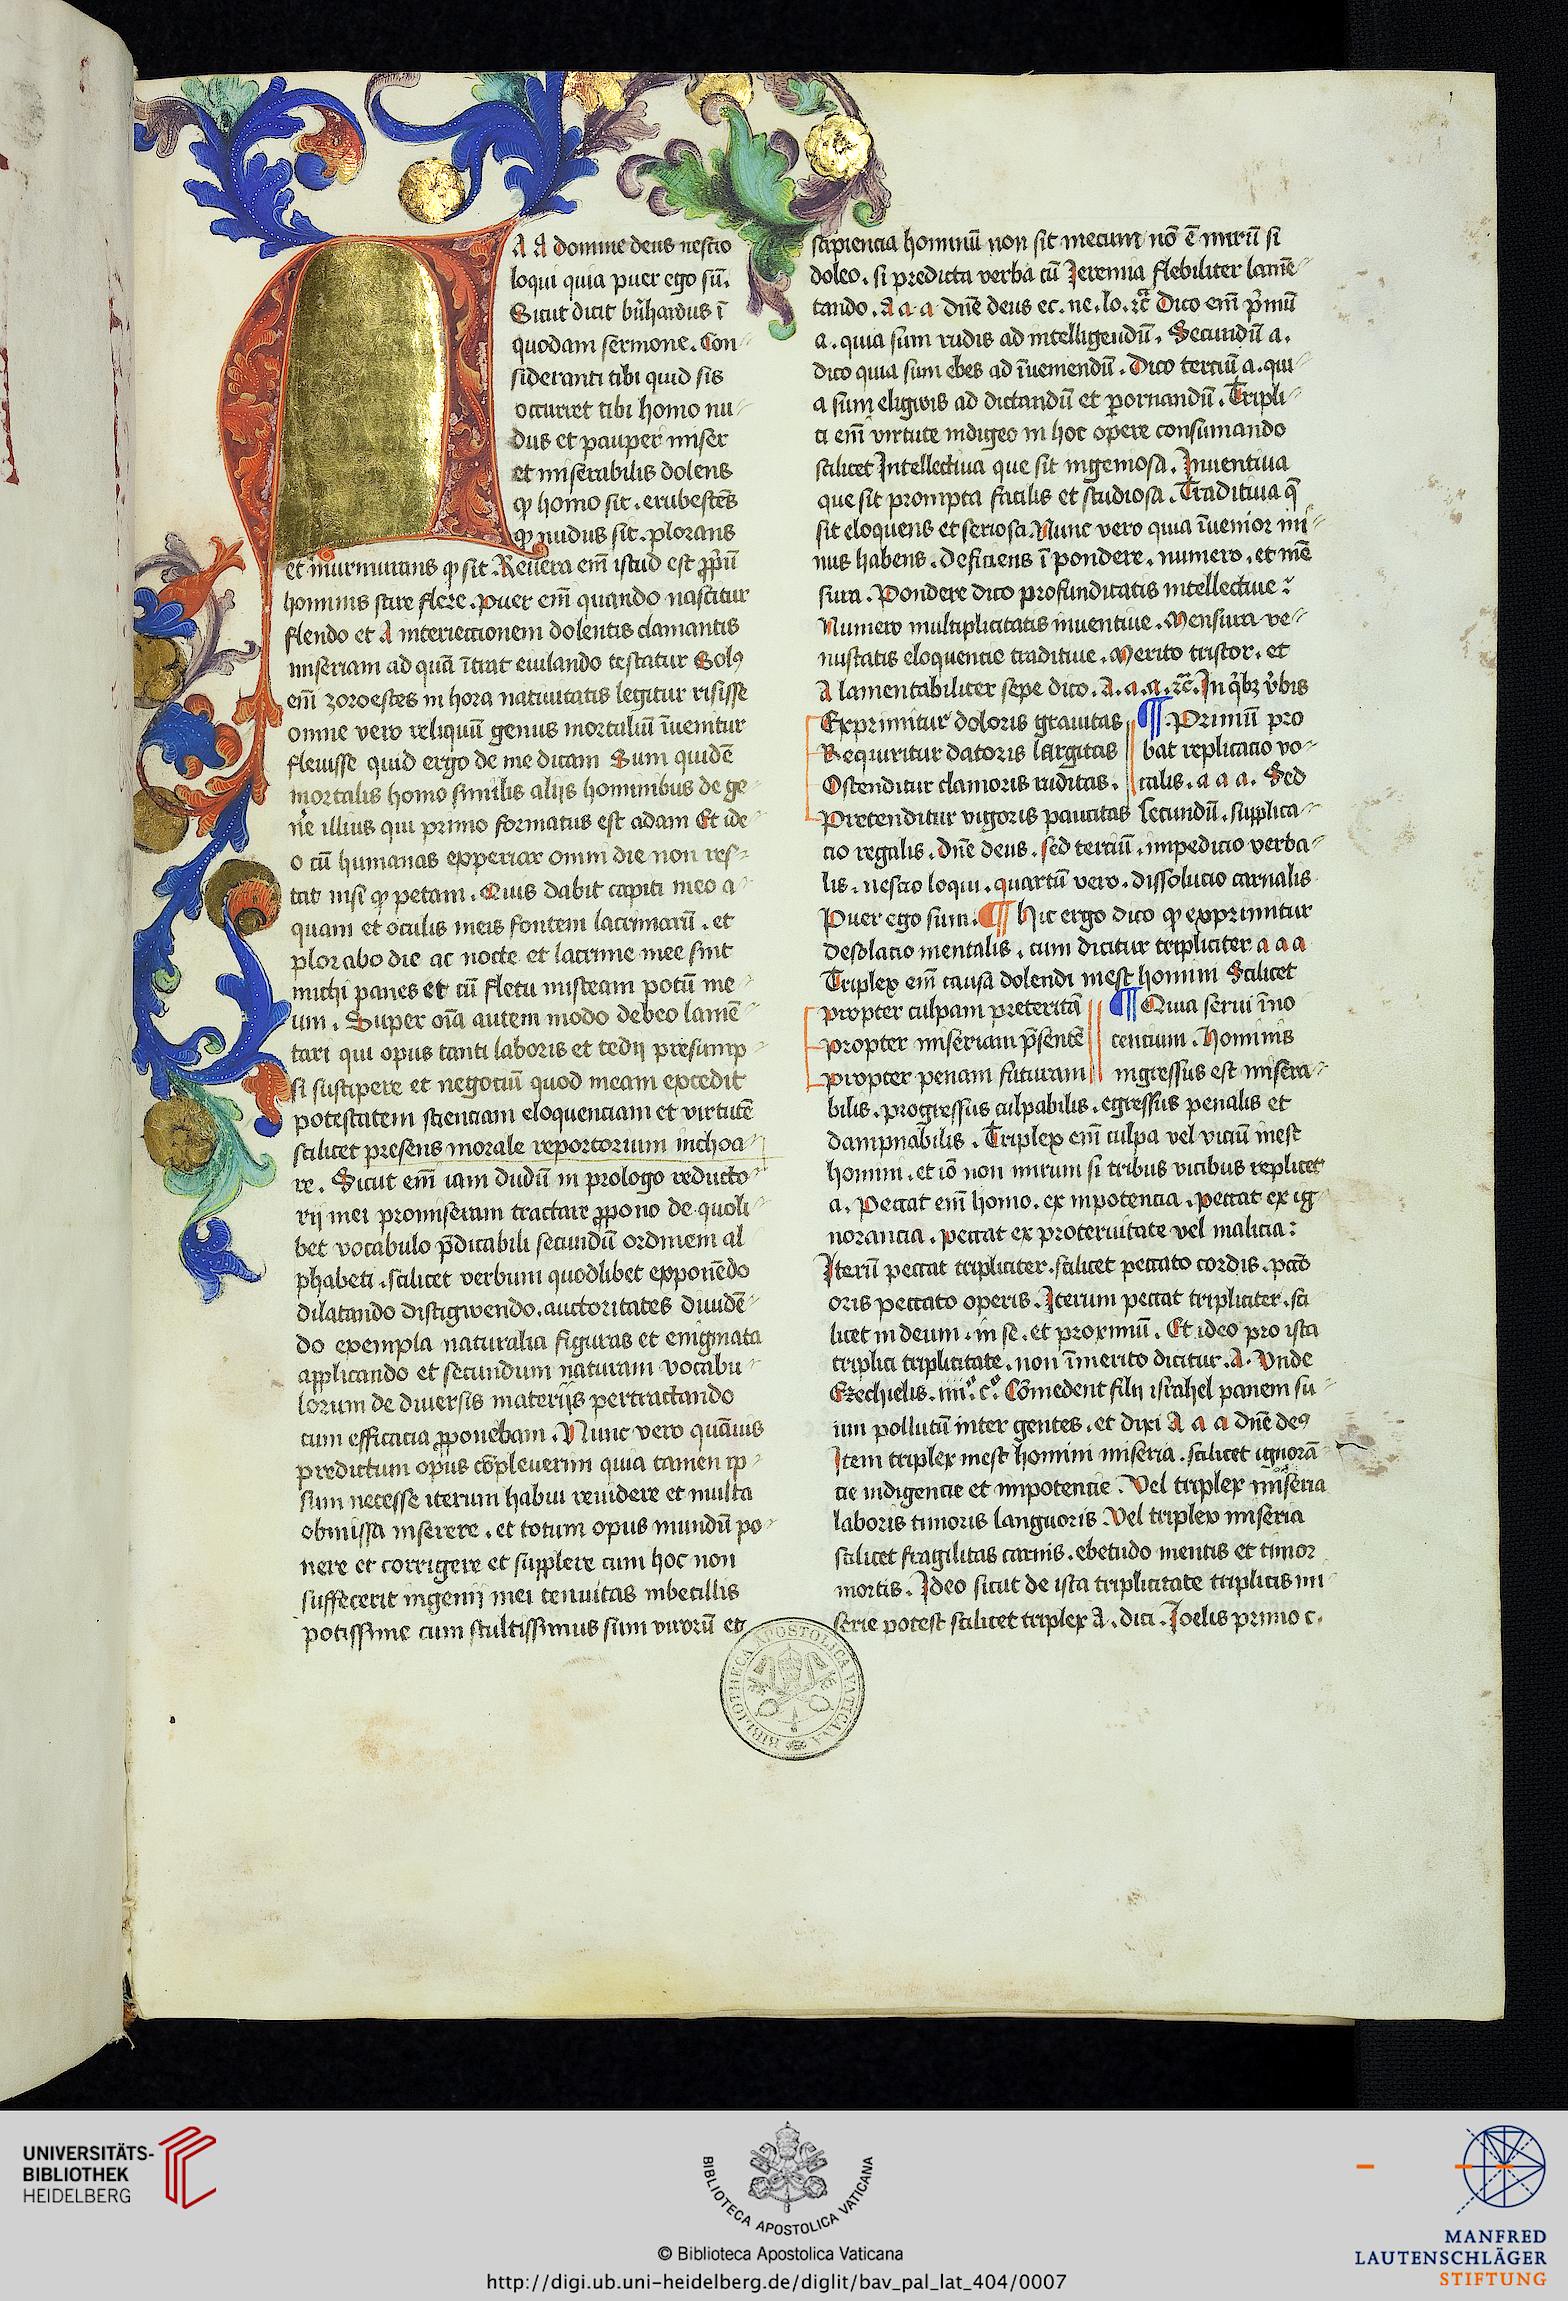 A A A domine deus nescio
loqui quia puer ego sū.
Sicut dicit bn̄hardus ī
quodam sermone. Con
sideranti tibi quid sis
occurret tibi homo nu
dus et pauper miser
et miserabilis dolens
ꝙ homo sit. erubescēs
ꝙ nudus sit. plorans
et murmurans ꝙ sit. Reuera em̄ istud est ꝓpriū
hominis scire flere. puer em̄ quando nascitur
flendo et A interiectionem dolentis clamantis
miseriam ad quā ītrat eiulando testatur Solꝯ
em̄ zoroestes in hora natiuitatis legitur risisse
omne vero reliquū genus mortaliū īuenitur
fleuisse quid ergo de me dicam Sum quidē
mortalis homo similis alijs hominibus de ge
ne illius qui primo formatus est adam Et ide
o cū humanas experiar omni die non res
tat nisi ꝙ petam. Quis dabit capiti meo a
quam et oculis meis fontem lacrimarū. et
plorabo die ac nocte et lacrime mee sint
michi panes et cū fletu misceam potū me
um. Super oīa autem modo debeo lamē
tari qui opus tanti laboris et tedij presump
si suscipere et negotiū quod meam excedit
potestatem scienciam eloquenciam et virtutē
scilicet presens morale reportorium inchoa
re. Sicut em̄ iam dudū in prologo reducto
rij mei promiseram tractare ꝓpono de quoli
bet vocabulo p̄dicabili secundū ordinem al
phabeti. scilicet verbum quodlibet exponēdo
dilatando distigwendo. auctoritates diuidē
do exempla naturalia figuras et enigmata
applicando et secundum naturam vocabu
lorum de diuersis materijs pertractando
cum efficacia ꝓponebam. Nunc vero quāuis
predictum opus cōpleuerim quia tamen ip
sum necesse iterum habui reuidere et multa
obmissa inserere. et totum opus mundū po
nere et corrigere et supplere cum hoc non
suffecerit ingenij mei tenuitas inbecillis
potissime cum stultissimus sum virorū et
sapiencia hominū non sit mecum nō ē mirū si
doleo. si predicta verba cū Jeremia flebiliter lamē
tando. A a a dn̄e deus ec. ne. lo. ⁊c̄ Dico em̄ p̄mū
a. quia sum rudis ad intelligendū. Secundū a.
dico quia sum ebes ad īueniendū. Dico terciū a. qui
a sum eligwis ad dictandū et ꝑornandū. Tripli
ci em̄ virtute indigeo in hoc opere consumando
scilicet Intellectiua que sit ingeniosa. Inuentiua
que sit prompta facilis et studiosa. Traditiua q̄
sit eloquens et seriosa. Nunc vero quia īuenior mi
nus habens. deficiens ī pondere. numero. et mē
sura. Pondere dico profunditatis intellectiue
Numero multiplicitatis inuentiue. Mensura ve
nustatis eloquencie traditiue. Merito tristor. et
A lamentabiliter sepe dico. A. a. a. ⁊c̄. In q̄bꝫ v̄bis
Exprimitur doloris grauitas ¶ Primū pro
Requiritur datoris largitas bat replicatio vo
Ostenditur clamoris ruditas. calis. a a a. Sed
Pretenditur vigoris paucitas secundū. supplica
cio regalis. dn̄e deus. sed terciū. impedicio verba
lis. nescio loqui. quartū vero. dissolucio carnalis
Puer ego sum. ¶ Hic ergo dico ꝙ exprimitur
desolacio mentalis. cum dicitur tripliciter a a a
Triplex em̄ causa dolendi inest homini Scilicet
propter culpam preteritā ¶ Quia serui īno
propter miseriam p̄sentē centium. Hominis
propter penam futuram ingressus est misera
bilis. progressus culpabilis. egressus penalis et
dampnabilis. Triplex em̄ culpa vel viciū inest
homini. et iō non mirum si tribus vicibus replicet
a. Peccat em̄ homo. ex inpotencia. peccat ex ig
norancia. peccat ex proteruitate vel malicia:
Iterū peccat tripliciter. scilicet peccato cordis. pctō
oris peccato operis. Iterum peccat tripliciter. sci
licet in deum. in se. et proximū. Et ideo pro ista
triplici triplicitate. non īmerito dicitur. A. Vnde
Ezechielis. iiijº. cº. Comedent filij israhel panem su
um pollutū inter gentes. et dixi A a a dn̄e deꝯ
Item triplex inest homini miseria. scilicet ignorā
cie indigencie et inpotencie. Vel triplex miseria
laboris timoris languoris. Vel triplex miseria
scilicet fragilitas carnis. ebetudo mentis et timor
mortis. Ideo sicut de ista triplicitate triplicis mi
serie potest scilicet triplex A. dici. Joelis primo c.
BIBLIOTHECA APOSTOLICA VATICANA
UNIVERSITÄTS-
BIBLIOTHEK
HEIDELBERG
BIBLIOTECA APOSTOLICA VATICANA
© Biblioteca Apostolica Vaticana
http://digi.ub.uni-heidelberg.de/diglit/bav_pal_lat_404/0007
MANFRED
LAUTENSCHLÄGER
STIFTUNG